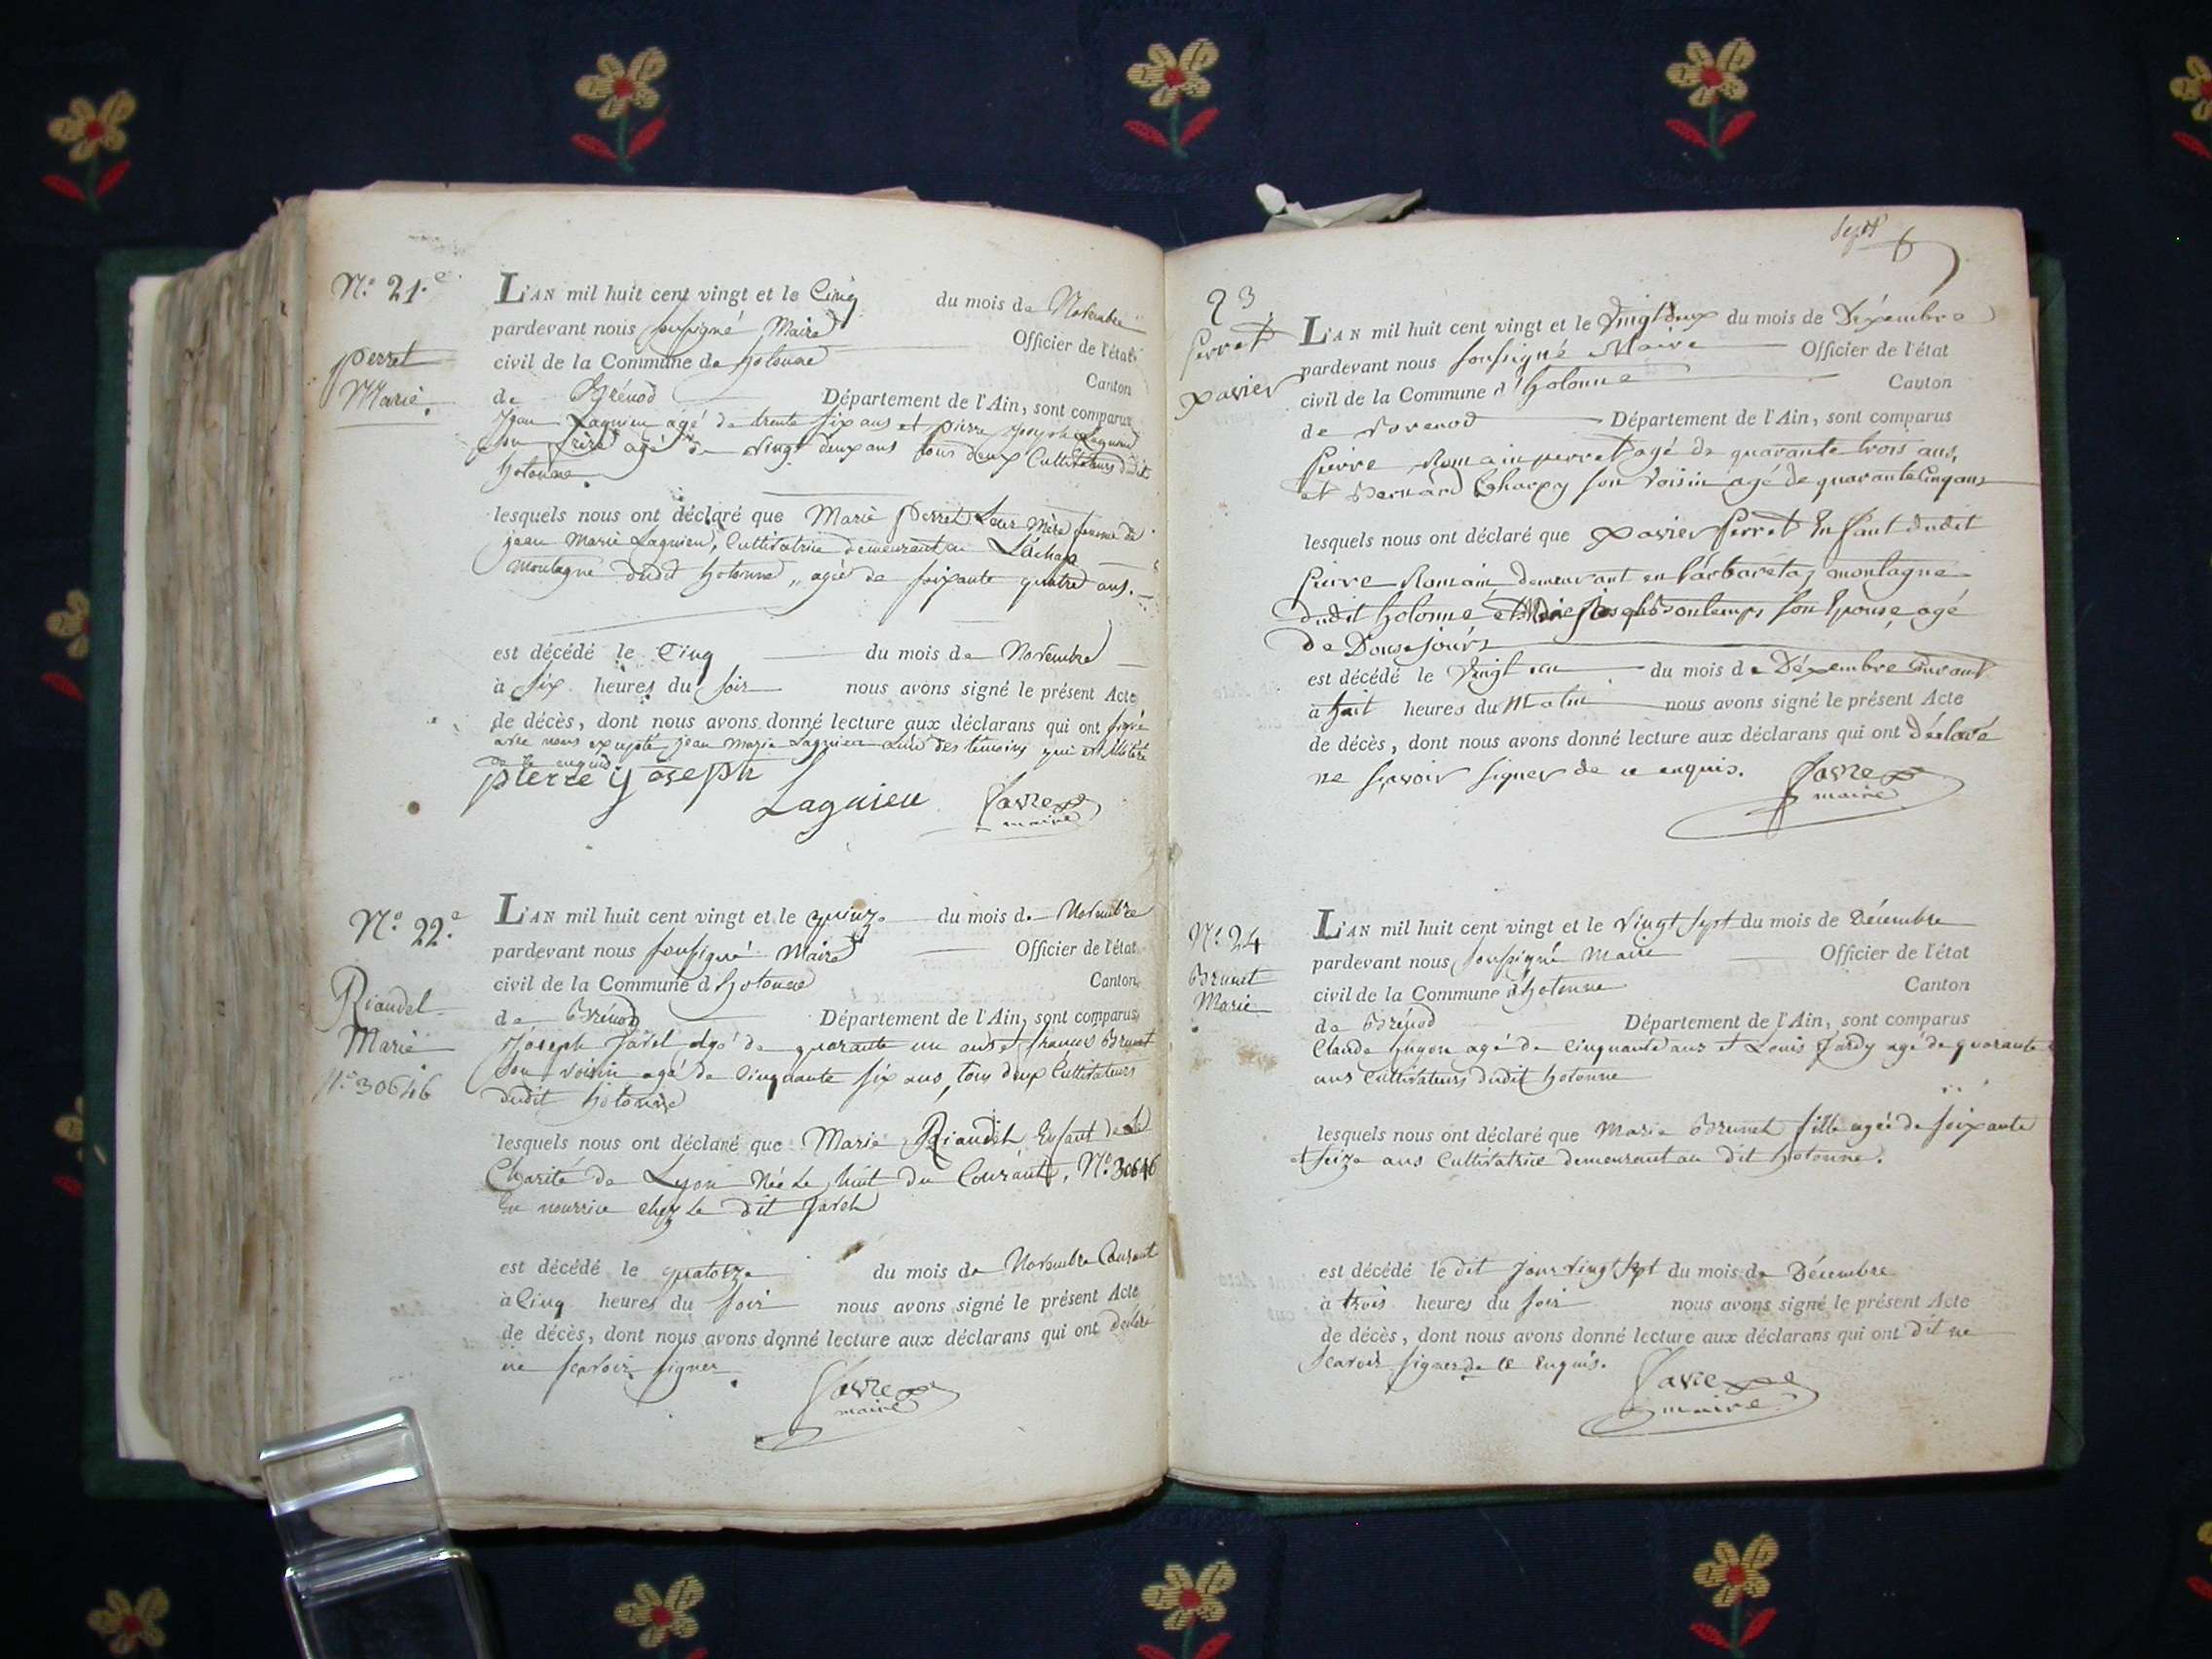 N.o 21.e
perret
Marie.
L'AN mil huit cent vingt et le Cinq du mois de Novembre
pardevant nous soussigné Maire Officier de l'état
civil de la Commune de hotonne Canton
de Brénod Département de l'Ain, sont comparus
Jean Lagnieu agé de trente six ans et pierre Joseph Lagnieu
son frère agé de vingt deux ans tous deux Cultivateurs dudit
hotonne.
lesquels nous ont déclaré que Marie perret Leur Mère femme de
jean Marie Lagnieu, Cultivatrice demeurant au
montagne dudit hotonne, agée de soixante quatre ans.
est décédé le Cinq du mois de Novembre
à six heures du soir nous avons signé le présent Acte
de décès, dont nous avons donné lecture aux déclarans qui ont signé
avec nous excepté jean marie Lagnieu L'un des témoins qui est illitéré
de ce enquis
pierre joseph
Lagnieu
favre
maire
N.o 22.e
Riandel
Marie
N.o 30646
L'AN mil huit cent vingt et le quinze du mois de Novembre
pardevant nous soussigné Maire Officier de l'état
civil de la Commune d hotonne Canton
de Brénod Département de l'Ain, sont comparus
Joseph Jarel agé de quarante un ans et francois Brunet
Son voisin agé de Cinquante six ans, tous deux Cultivateurs
dudit hotonne
lesquels nous ont déclaré que Marie Riandel Enfant de la
Charité de Lyon Née Le huit du Courant, N.o 30646
En nourrice chez Le dit Jarel
est décédé le quatorze du mois de Novembre Courant
à Cinq heures du soir nous avons signé le présent Acte
de décès, dont nous avons donné lecture aux déclarans qui ont déclaré
ne scavoir signer
favre
maire
Sept
23
Perret
xavier
L'AN mil huit cent vingt et le vingt deux du mois de Dexembre
pardevant nous soussigné Maire Officier de l'état
civil de la Commune d'hotonne Canton
de Département de l'Ain, sont comparus
Pierre Romain perret agé de quarante trois ans,
et Bernard Charpy son voisin agé de quarante Cinq ans
lesquels nous ont déclaré que xavier Perret Enfant dudit
Pierre Romain demeurant en montagne
dudit hotonne et son Epouse, agé
de Douse jours
est décédé le vingt un du mois de Déxembre Courant
à huit heures du Matin nous avons signé le présent Acte
de décès, dont nous avons donné lecture aux déclarans qui ont déclaré
ne sçavoir signer de ce enquis.
favre
maire
N.o 24
Brunet
Marie
L'AN mil huit cent vingt et le vingt sept du mois de Décembre
pardevant nous soussigné Maire Officier de l'état
civil de la Commune d'hotonne Canton
de Brénod Département de l'Ain, sont comparus
Claude guyon agé de Cinquante ans et Louis Jardy agé de quarante
ans Cultivateurs dudit hotonne
lesquels nous ont déclaré que Marie Brunet fille agée de soixante
et seize ans Cultivatrice demeurant au dit hotonne.
est décédé le dit jour vingt sept du mois de Décembre
à trois heures du soir nous avons signé le présent Acte
de décès, dont nous avons donné lecture aux déclarans qui ont dit ne
scavoir signer de ce Enquis.
favre
maire